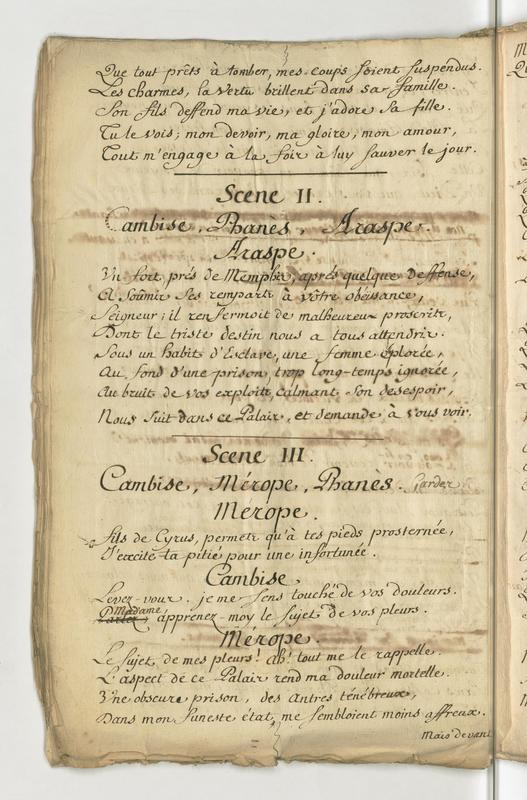 Que tout prêts à tomber, mes coups soient suspendus.
Les charmes, la vertu brillent dans sa famille.
Son fils deffend ma vie, et j'adore sa fille.
Tu le vois; mon devoir, ma gloire, mon amour,
Tout m'engage à la foir à luy sauver le jour.
Scene II.
Cambise, Phanès, Araspe.
Araspe.
Un fort, prés de Memphis, aprés quelque deffense,
A soûmir ses remparts à vôtre obéissance,
Seigneur; il renfermoit de malheureux proscrits,
Dont le triste destin nous a tous attendris.
Sous un habit d'Esclave, une femme éplorée,
Au fond d'une prison, trop long-temps ignorée,
Au bruit de vos exploits, calmant son desespoir,
Nous suit dans ce Palais, et demande à vous voir.
Scene III.
Cambise, Mérope, Phanès. Gardes
Merope.
fils de Cyrus, permets qu'à tes pieds prosternée,
J'excite ta pitié pour une infortunée.
Cambise.
Levez-vous. je me sens touché de vos douleurs.
Madame
Parlez, apprenez-moy le sujet de vos pleurs.
Merope.
Le sujet, de mes pleurs! ah! tout me le rappelle.
L'aspect de ce Palais rend ma douleur mortelle.
Une obscure prison, des antres ténébreux,
Dans mon funeste état, me sembloient moins affreux.
Mais devant